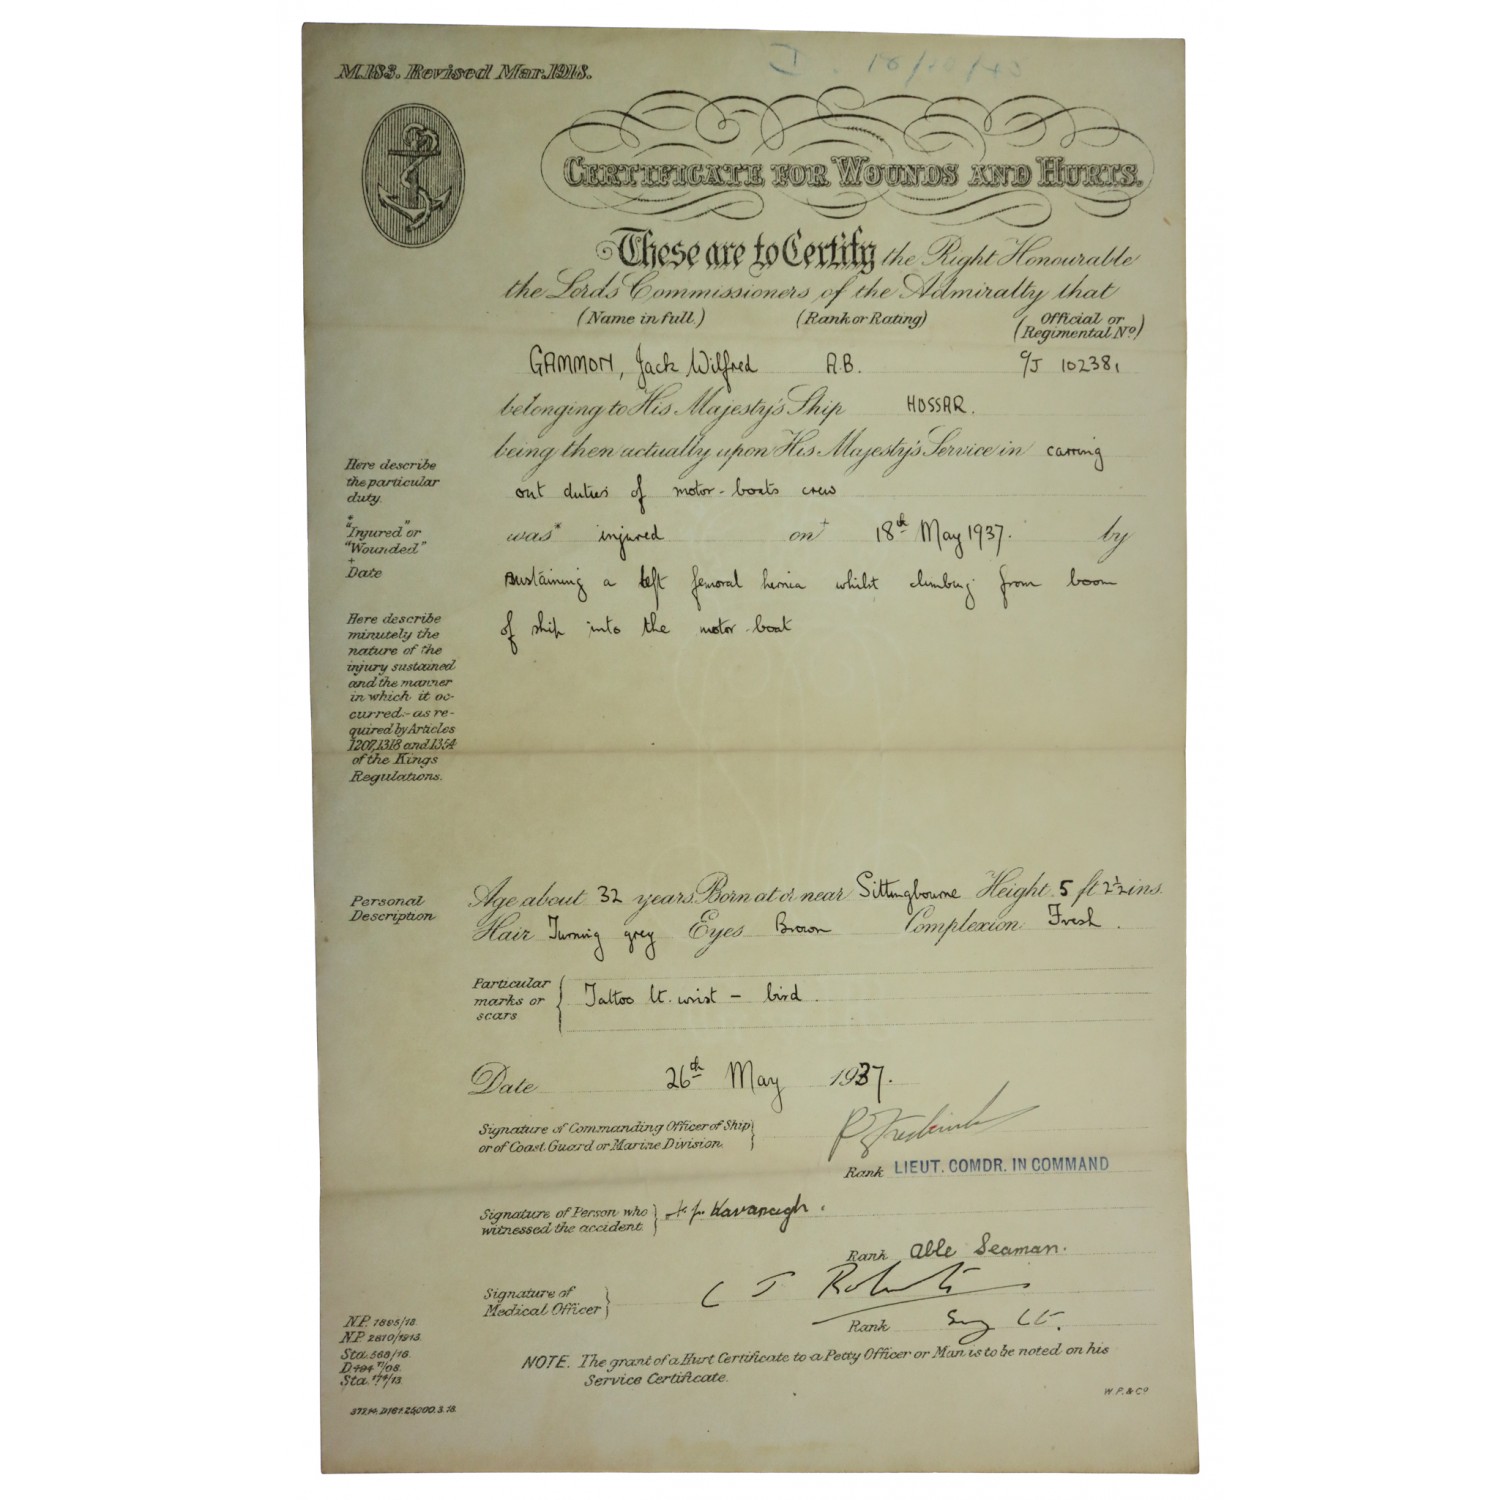 M.183. Revised Mar. 1918.
16/10/43
CERTIFICATE FOR WOUNDS AND HURTS.
These are to Certify the Right Honourable
the Lords Commissioners of the Admiralty that
(Name in full.) (Rank or Rating) (Official or Regimental No.)
GAMMON, Jack Wilfred A.B. C/J 102381
belonging to His Majesty's Ship HUSSAR.
being then actually upon His Majesty's Service in carring
Here describe the particular duty.
out duties of motor-boats crew
* "Injured" or "Wounded"
was* injured on† 18th May 1937. by
† Date
sustaining a left femoral hernia whilst climbing from boom
of ship into the motor-boat
Here describe
minutely the
nature of the
injury sustained
and the manner
in which it oc-
curred:- as re-
quired by Articles
1207,1318 and 1354
of the Kings
Regulations.
Personal Description
Age about 32 years. Born at or near Sittingbourne Height 5 ft 2½ ins.
Hair Turning grey Eyes Brown Complexion Fresh.
Particular marks or scars { Tattoo lt. wrist - bird.
Date 26th May 1937.
Signature of Commanding Officer of Ship
or of Coast Guard or Marine Division. }
Rank LIEUT. COMDR. IN COMMAND
Signature of Person who
witnessed the accident } Kavanagh.
Rank Able Seaman.
Signature of
Medical Officer } C J Roberts
Rank Surg Lt.
N.P. 1895/18.
N.P. 2810/1913.
Sta. 568/16.
NOTE. The grant of a Hurt Certificate to a Petty Officer or Man is to be noted on his
Service Certificate.
W.P. & Co